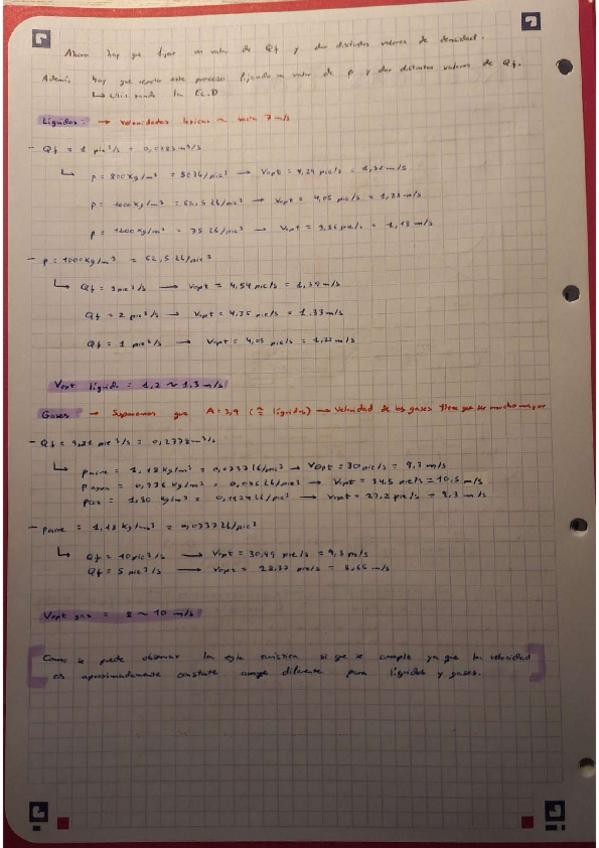 Ahora hay que fijar un valor de Qf y dar distintos valores de densidad.
Además hay que repetir este proceso fijando un valor de ρ y dar distintos valores de Qf.
↳ utilizando la Ec.D
Líquidos: → Velocidades típicas ~ hasta 7 m/s
- Qf = 1 pie³/s = 0,0283 m³/s
↳ ρ = 800 kg/m³ = 50 lb/pie³ → Vopt = 4,29 pie/s = 1,31 m/s
ρ = 1000 kg/m³ = 62,5 lb/pie³ → Vopt = 4,05 pie/s = 1,23 m/s
ρ = 1200 kg/m³ = 75 lb/pie³ → Vopt = 3,86 pie/s = 1,18 m/s
- ρ = 1000 kg/m³ = 62,5 lb/pie³
↳ Qf = 3 pie³/s → Vopt = 4,54 pie/s = 1,39 m/s
Qf = 2 pie³/s → Vopt = 4,35 pie/s = 1,33 m/s
Qf = 1 pie³/s → Vopt = 4,05 pie/s = 1,23 m/s
Vopt líquido = 1,2 ~ 1,3 m/s
Gases: → Suponemos que A = 3,9 (≅ líquidos) → Velocidad de los gases tiene que ser mucho mayor
- Qf = 9,81 pie³/s = 0,2778 m³/s
↳ ρaire = 1,18 kg/m³ = 0,0737 lb/pie³ → Vopt = 30 pie/s = 9,3 m/s
= 0,0
lb/pie³ → Vopt = 34,5 pie/s = 10,5 m/s
kg/m³ = 0,1124 lb/pie³ → Vopt = 27,2 pie/s = 8,3 m/s
- ρaire = 1,18 kg/m³ = 0,0737 lb/pie³
↳ Qf = 10 pie³/s → Vopt = 30,49 pie/s = 9,3 m/s
Qf = 5 pie³/s → Vopt = 28,37 pie/s = 8,65 m/s
Vopt gas = 8 ~ 10 m/s
Como se puede observar la regla heurística si que se cumple ya que la velocidad
es aproximadamente constante aunque diferente para líquidos y gases.